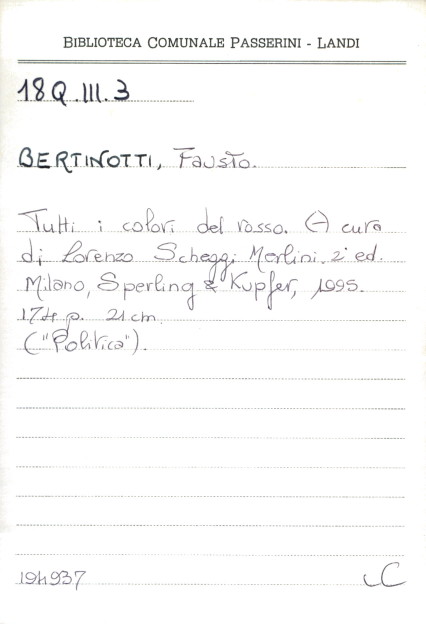 BIBLIOTECA COMUNALE PASSERINI - LANDI
18Q.III.3
BERTINOTTI, Fausto.
Tutti i colori del rosso. (-) cura
di Lorenzo Scheggi Merlini. 2ª ed.
Milano, Sperling & Kupfer, 1995.
174 p. 21 cm
("Politica").
194937